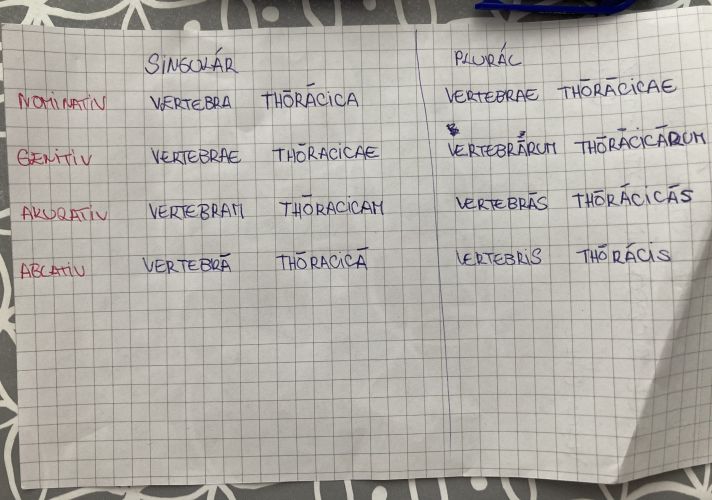 SINGULÁR PLURÁL
NOMINATIV VERTEBRA THŌRĀCICA VERTEBRAE THŌRĀCICAE
GENITIV VERTEBRAE THŌRACICAE VERTEBRĀRUM THŌRĀCICĀRUM
AKUZATIV VERTEBRAM THŌRACICAM VERTEBRĀS THŌRĀCICĀS
ABLATIV VERTEBRĀ THŌRACICĀ VERTEBRIS THŌRĀCIS